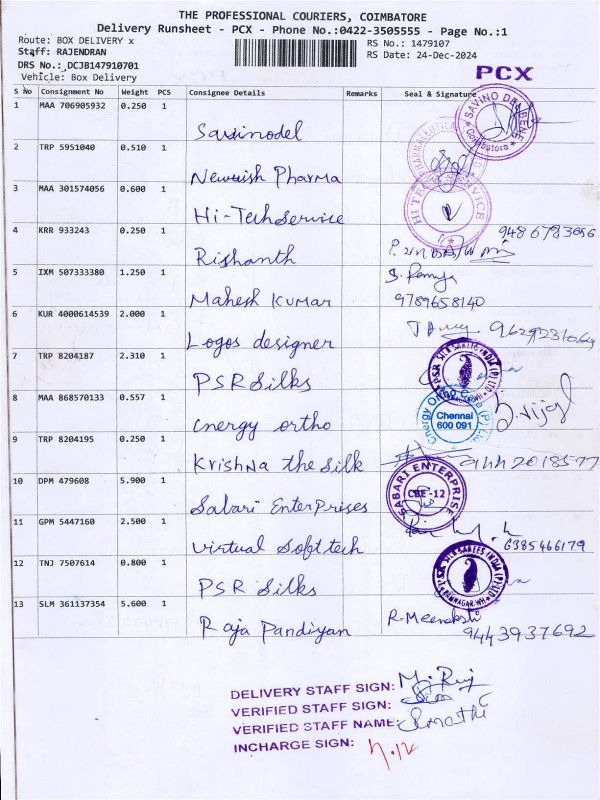 THE PROFESSIONAL COURIERS, COIMBATORE
Delivery Runsheet - PCX - Phone No.:0422-3505555 - Page No.:1
Route: BOX DELIVERY x
RS No.: 1479107
Staff: RAJENDRAN
RS Date: 24-Dec-2024
DRS No.:DCJB147910701
Vehicle: Box Delivery
PCX
S No Consignment No Weight PCS Consignee Details Remarks Seal & Signature
1 MAA 706905932 0.250 1 Savinodel SAVINO DEL BENE Coimbatore
2 TRP 5951040 0.510 1 Newwish Pharma
3 MAA 301574056 0.600 1 Hi-Techservice HI TECH SERVICE
4 KRR 933243 0.250 1 Rishanth
5 IXM 507333380 1.250 1 Mahesh Kumar S. Ramya 9789658140
6 KUR 4000614539 2.000 1 Logos designer
7 TRP 8204187 2.310 1 PSR Silks PSR SILK SAREES INDIA (P) LTD
8 MAA 868570133 0.557 1 energy ortho Chennai 600 091
9 TRP 8204195 0.250 1 Krishna the silk
10 DPM 479608 5.900 1 Sabari Enterprises SABARI ENTERPRISE CBE-12
11 GPM 5447160 2.500 1 virtual soft tech 6385466179
12 TNJ 7507614 0.800 1 PSR Silks PSR SILK SAREES INDIA (P) LTD
13 SLM 361137354 5.600 1 Raja Pandiyan R. Meenakshi 9443937692
DELIVERY STAFF SIGN:
VERIFIED STAFF SIGN:
VERIFIED STAFF NAME:
INCHARGE SIGN: